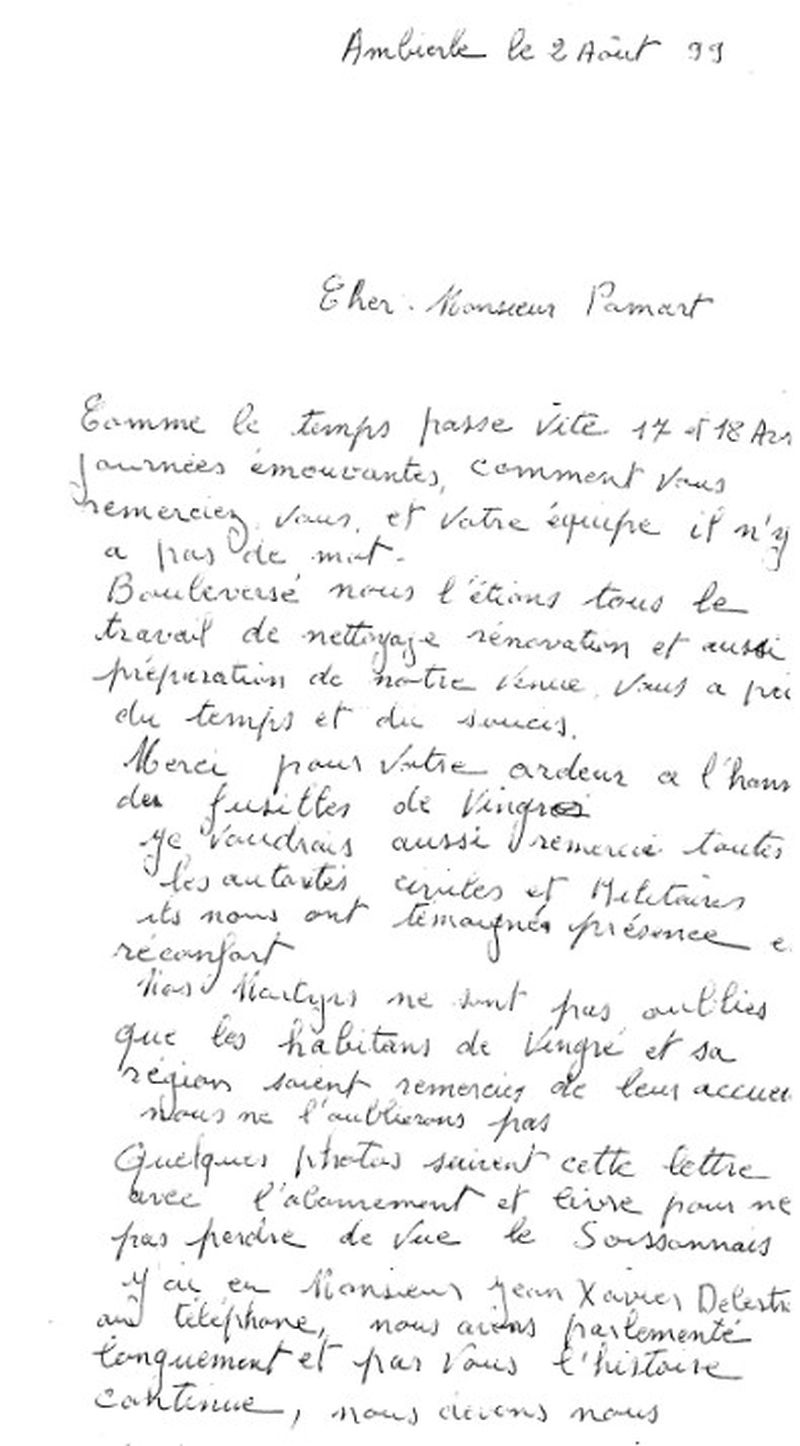 Ambierle le 2 Août 99
Cher Monsieur Pamart
Comme le temps passe vite 17 et 18 Avr
journées émouvantes, comment vous
remerciez vous, et votre équipe il n'y
a pas de mot.
Bouleversé nous l'étions tous le
travail de nettoyage rénovation et aussi
préparation de notre venue, vous a pri
du temps et du soucis.
Merci pour votre ardeur a l'hon
des fusillés de Vingré
Je voudrais aussi remercié toutes
les autorités civiles et Militaires
ils nous ont témoignés présence e
réconfort
Nos Martyrs ne sont pas oubliés
que les habitans de Vingré et sa
région soient remerciez de leur accuei
nous ne l'oublierons pas
Quelques photos suivent cette lettre
avec l'abonnement et livre pour ne
pas perdre de vue le Soissonnais
J'ai eu Monsieur Jean Xavier Delestr
au téléphone, nous avons parlementé
longuement et par vous l'histoire
continue, nous devons nous